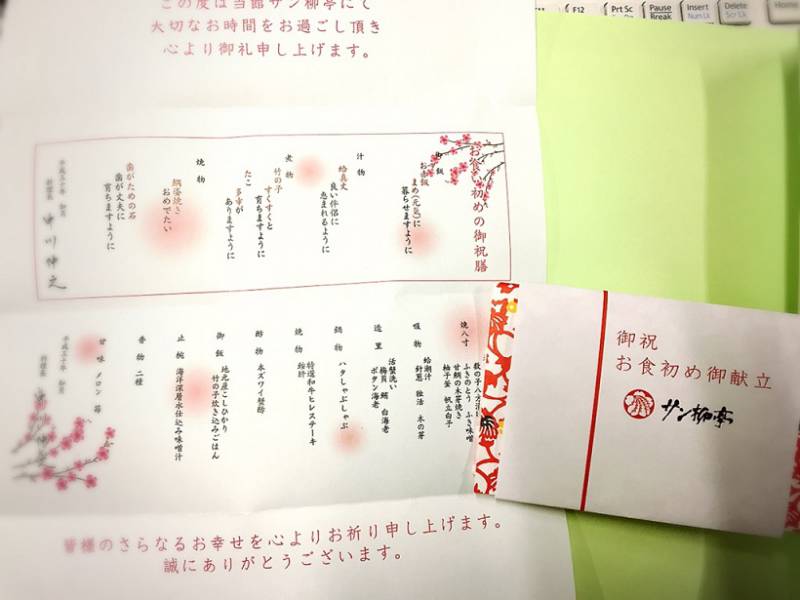 この度は当館サン柳亭にて
大切なお時間をお過ごし頂き
心より御礼申し上げます。
お食い初めの御祝膳
御飯
お赤飯
まめ(元気)に
暮らせますように
汁物
蛤真丈
良い伴侶に
恵まれるように
煮物
竹の子
すくすくと
育ちますように
たこ
多幸が
ありますように
焼物
鯛姿焼き
おめでたい
歯がための石
歯が丈夫に
育ちますように
平成三十年 如月
料理長
中川伸之
焼八寸
ふきのとう ふき味噌
甘鯛の木の芽焼き
柚子釜 帆立白子
吸物
蛤潮汁
針葱 独活 木の芽
造里
活蟹洗い
梅貝 鮪 白海老
ボタン海老
鍋物
ハタしゃぶしゃぶ
焼物
特選和牛ヒレステーキ
酢物
本ズワイ蟹酢
御飯
地元産こしひかり
竹の子炊き込みごはん
止椀
海洋深層水仕込み味噌汁
香物 二種
甘味 メロン 苺
平成三十年 如月
料理長
皆様のさらなるお幸せを心よりお祈り申し上げます。
誠にありがとうございます。
御祝
お食初め御献立
サン柳亭
F12
Prt Sc
Pause
Break
Insert
Num Lk
Delete
Scr Lk
Home